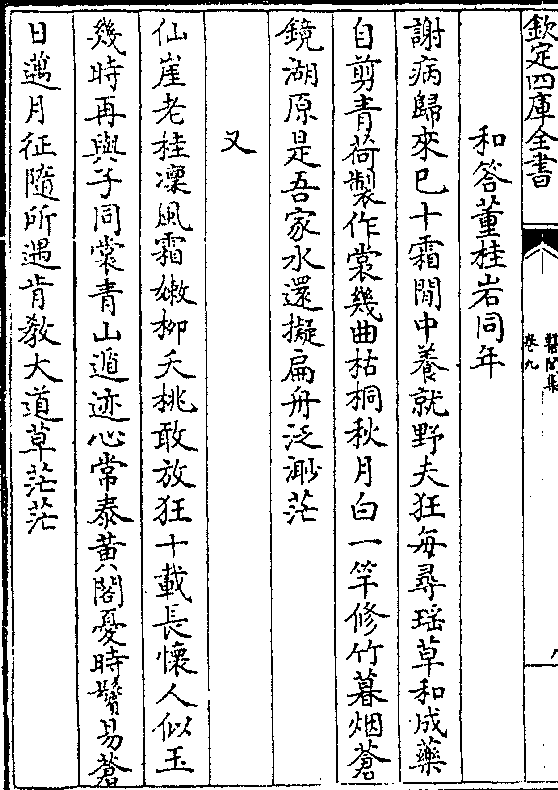 欽定四庫全書
醫閭集
卷九
和答董桂岩同年
謝病歸來已十霜閒中養就野夫狂每尋瑶草和成藥
自剪青荷製作裳幾曲枯桐秋月白一竿修竹暮烟蒼
鏡湖原是吾家水還擬扁舟泛渺茫
又
仙崖老桂凜風霜嫩柳夭桃敢放狂十載長懷人似玉
幾時再與子同裳青山遁迹心常泰黄閣憂時鬢易蒼
日邁月征隨所遇肯教大道草茫茫